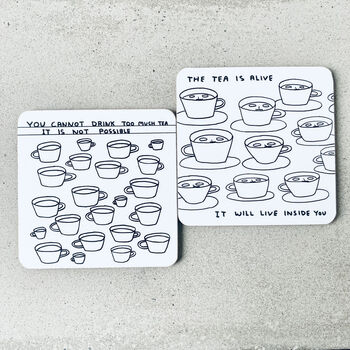 YOU CANNOT DRINK TOO MUCH TEA
IT IS NOT POSSIBLE
THE TEA IS ALIVE
IT WILL LIVE INSIDE YOU